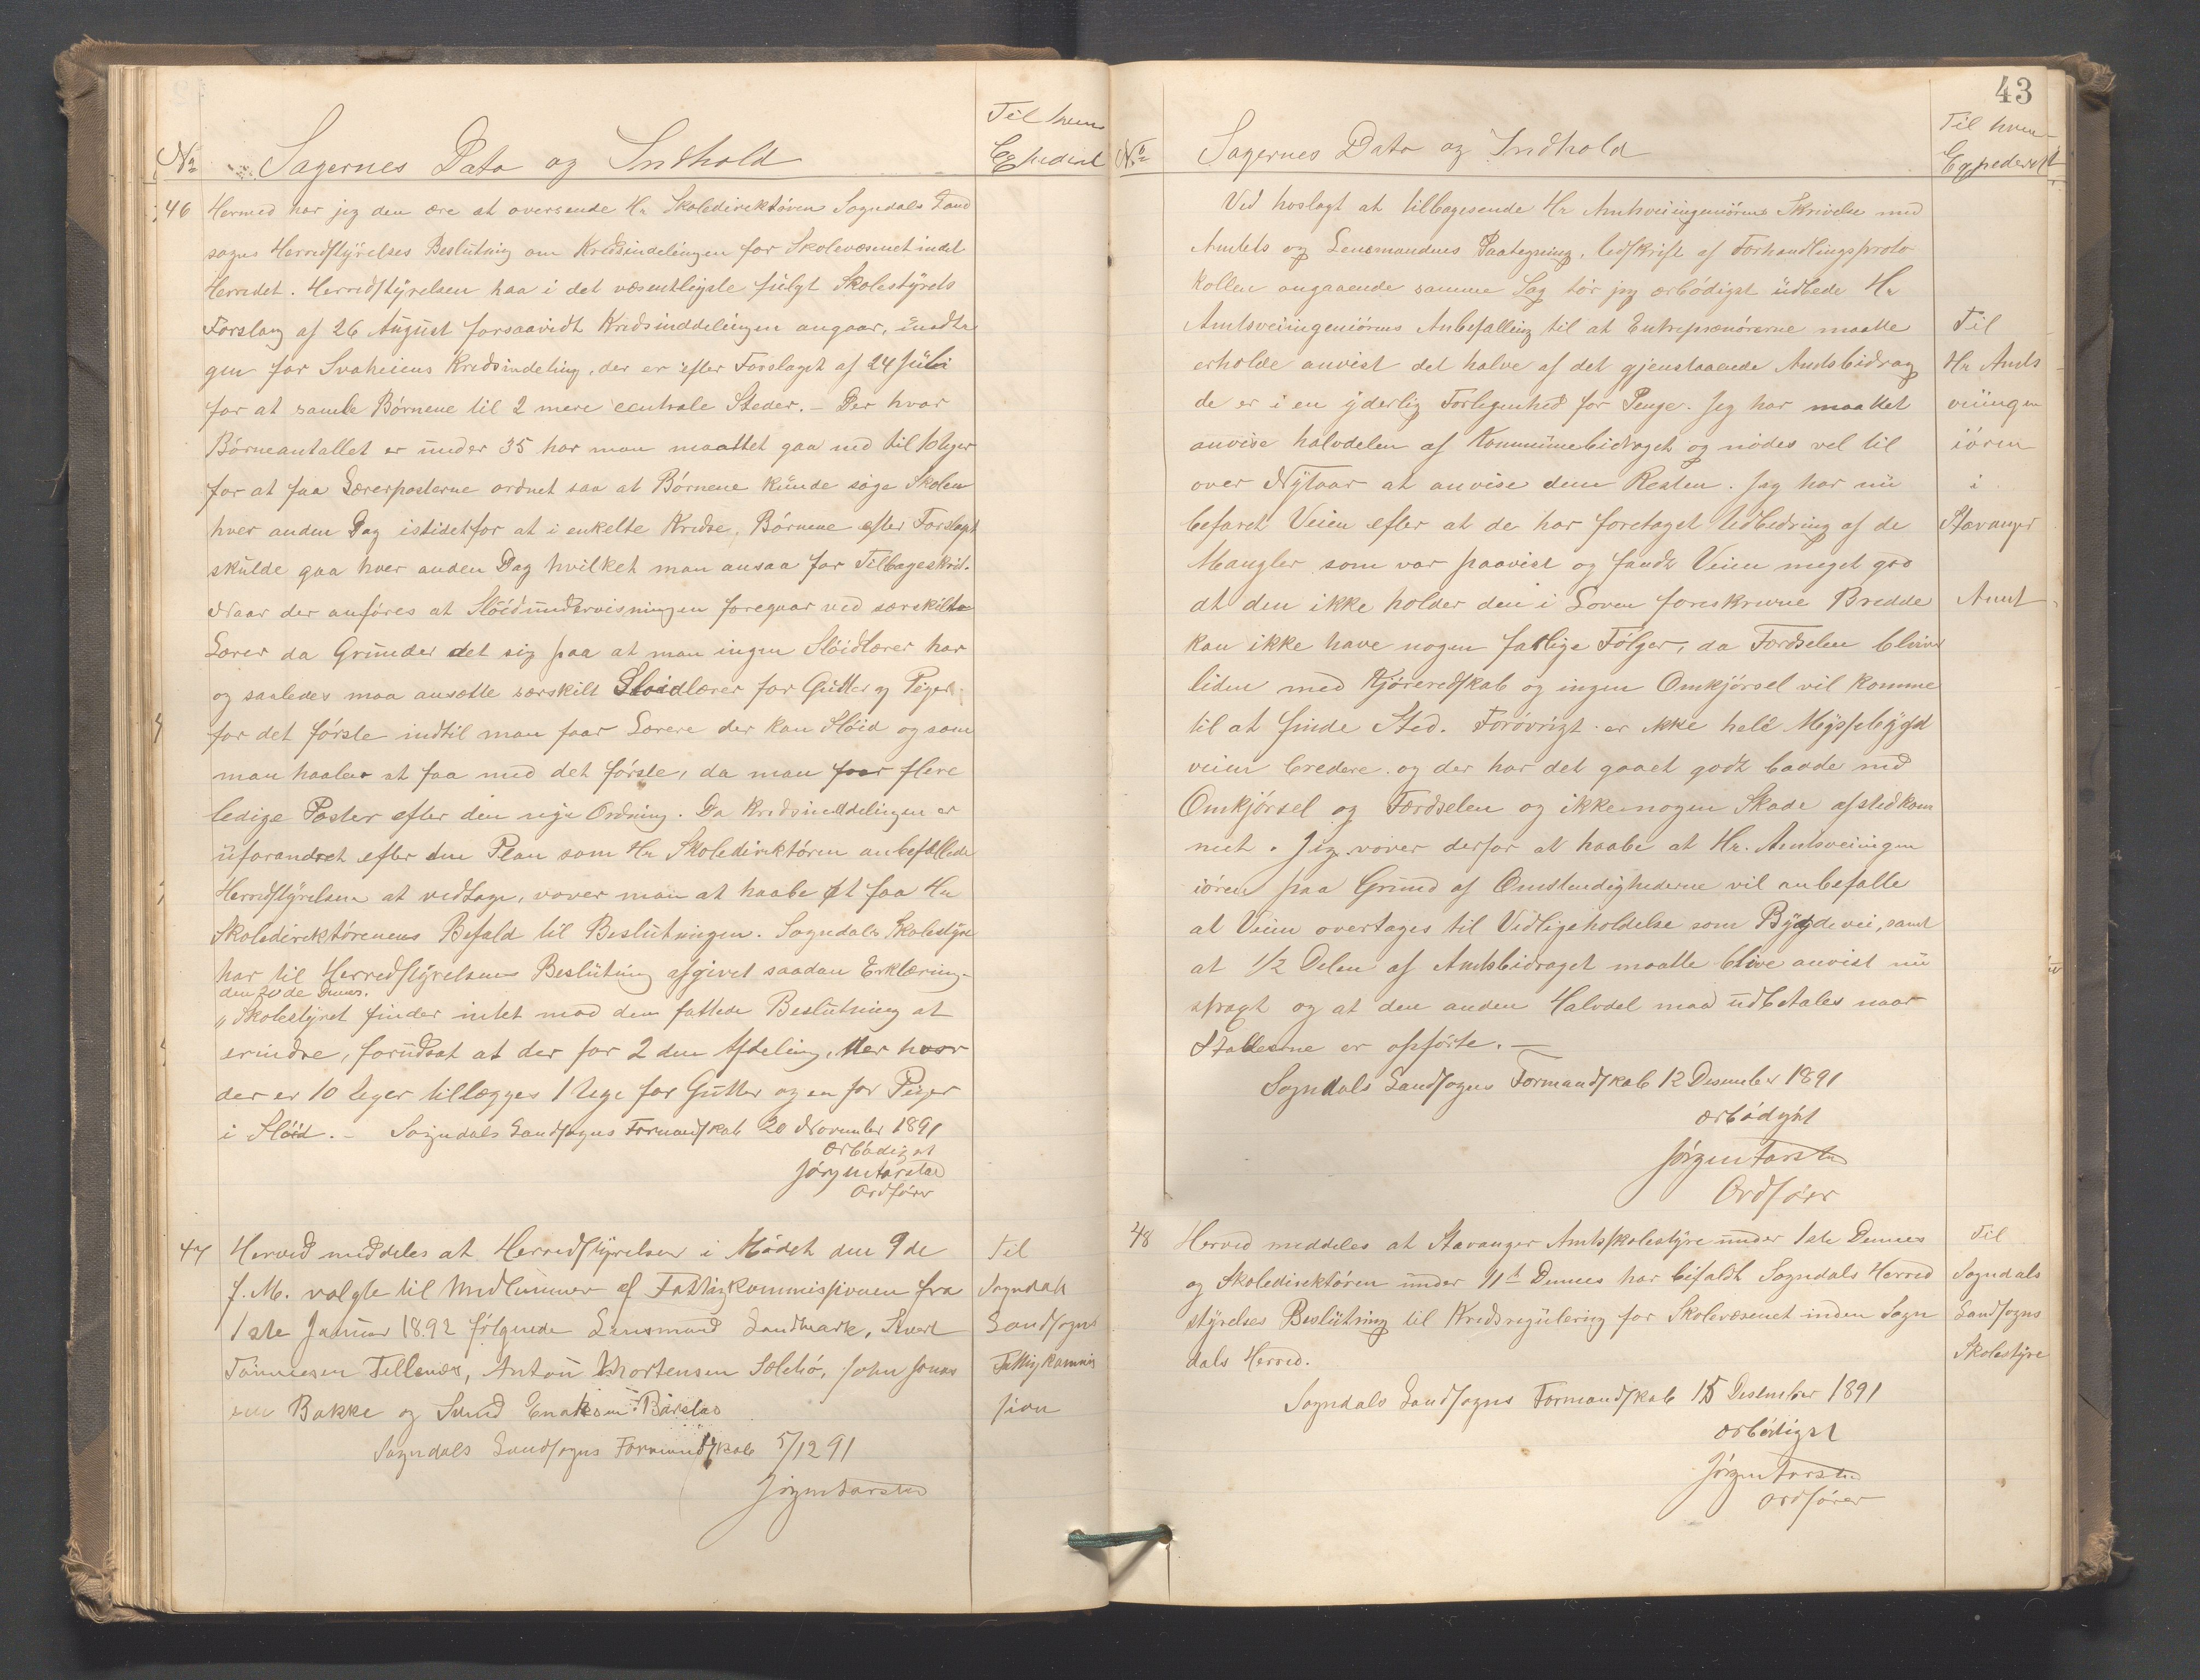 Til hvem
No Sagernes Dato og Indhold Expederet
46 Hermed har jeg den ære at oversende Hr Skoledirektøren Sogndals Land
sogns Herredstyrelses Beslutning om Kredsindelingen for Skolevæsenet indet
Herredet. Herredstyrelsen haa i det væsentligste fulgt Skolestyrets
Forslag af 26 August forsaavidt Kredsinddelingen angaar, undta
gen for Svaheiens Kredsindeling, der er efter Forslaget af 24 Juli
for at samle Børnene til 2 mere centrale Steder. – Der hvor
Børneantallet er under 35 har man maattet gaa ned til 10 Uger
for at faa Lærerposterne ordnet saa at Børnene kunde søge Skolen
hver anden Dag istidetfor at i enkelte Kredse, Børnene efter Forslaget
skulde gaa hver anden Dag hvilket man ansaa for Tilbageskrit.
Naar der anføres at Slöidundervisningen foregaar ved særskilte
Lærer da Grunder det sig paa at man ingen Slöidlærer har
og saaledes maa ansætte særskilt Sloidlærer for Gutter og Piger
for det første indtil man faar Lærere der kan Slöid og som
man haaber at faa med det første, da man faar flere
ledige Poster efter den nye Ordning. Da Kredsinddelingen er
uforandret efter den Plan som Hr Skoledirektøren anbefallede
Herredstyrelsen at vedtage, vover man at haabe at faa Hr
Skoledirektørenens Befald til Beslutningen. Sogndals Skolestyre
har til Herredstyrelsens Beslutning afgivet saadan Erklæring
den 20de Dennes.
„Skolestyret finder intet mod den fattede Beslutning at
erindre, forudsat at der for 2den Afdeling, der hvor
der er 10 Uger tillægges 1 Uge for Gutter og en for Piger
i Slöid. – Sogndals Landsogns Formandskab 20 November 1891
ærbødigst
Jørgen Tarstad
Ordfører
47 Herved meddeles at Herredstyrelsen i Mødet den 9de Til
f. M. valgte til Medlemmer af Fattigkommissionen fra Sogndals
1ste Januar 1892 følgende Lensmand Landmark, Sivert Landsogns
Tønnesen Tellenæs, Anton Mortensen Sælebø, John Jonas Fattigkommis
sen Bakke og Svend Enoksen Barstad sion
Sogndals Landsogns Formandskab 5/12 91
Jørgen Tarstad
43
Til hvem
No Sagernes Dato og Indhold Expederet
Ved hoslagt at tilbagesende Hr Amtsveiingeniørens Skrivelse med
Amtets og Lensmandens Paategning, Udskrift af Forhandlingsproto
kollen angaaende samme Sag tør jeg ærbødigst udbede Hr
Amtsveiingeniørens Anbefalling til at Entreprenørerne maatte Til
erholde anvist det halve af det gjenstaaende Amtsbidrag Hr Amts
de er i en yderlig Forlegenhed for Penge. Jeg har maattet veiingen
anvise halvdelen af Kommunebidraget og nødes vel til iøren
over Nytaar at anvise dem Resten. Jeg har nu i
befaret Veien efter at de har foretaget Udbedring af de Stavanger
Mangler som var paavist og fandt Veien meget god
at den ikke holder den i Loven foreskrevne Bredde Amt
kan ikke have nogen farlige Følger, da Færdselen bliver
liden med Kjøreredskab og ingen Omkjørsel vil komme
til at finde Sted. Forøvrigt er ikke held Mysselbygd
veien bredere og der har det gaaet godt baade med
Omkjørsel og Færdselen og ikke nogen Skade afstedkom
met. Jeg vover derfor at haabe at Hr. Amtsveiingen
iøren paa Grund af Omstendighederne vil anbefalle
at Veien overtages til Vedligeholdelse som Bygdevei, samt
at 1/2 Delen af Amtsbidraget maatte blive anvist nu
straqt og at den anden Halvdel maa udbetales naar
Stabberne er opførte. —
Sogndals Landsogns Formandskab 12 Desember 1891
ærbødigst
Jørgen Tarstad
Ordfører
48 Herved meddeles at Stavanger Amtsskolestyre under 1ste Dennes Til
og Skoledirektøren under 11t Dennes har bifaldt Sogndals Herred Sogndals
styrelses Beslutning til Kredsregulering for Skolevæsenet inden Sogn Landsogns
dals Herred. Skolestyre
Sogndals Landsogns Formandskab 15 Desember 1891
ærbødigst
Jørgen Tarstad
Ordfører